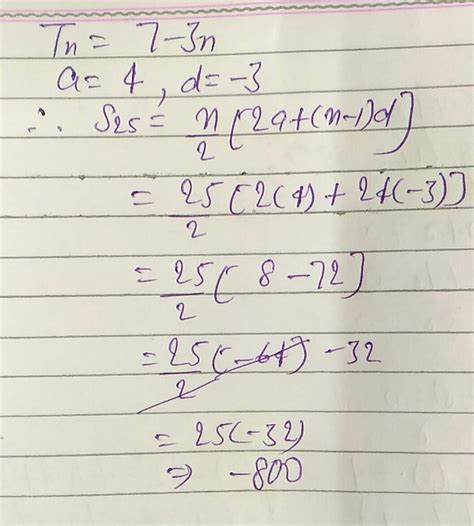 Tn = 7-3n
a= 4 , d= -3
∴ S25 = n/2 [2a+(n-1)d]
= 25/2 [2(4) + 24(-3)]
= 25/2 [ 8 - 72]
= 25/2 (-64) -32
= 25(-32)
⇒ -800